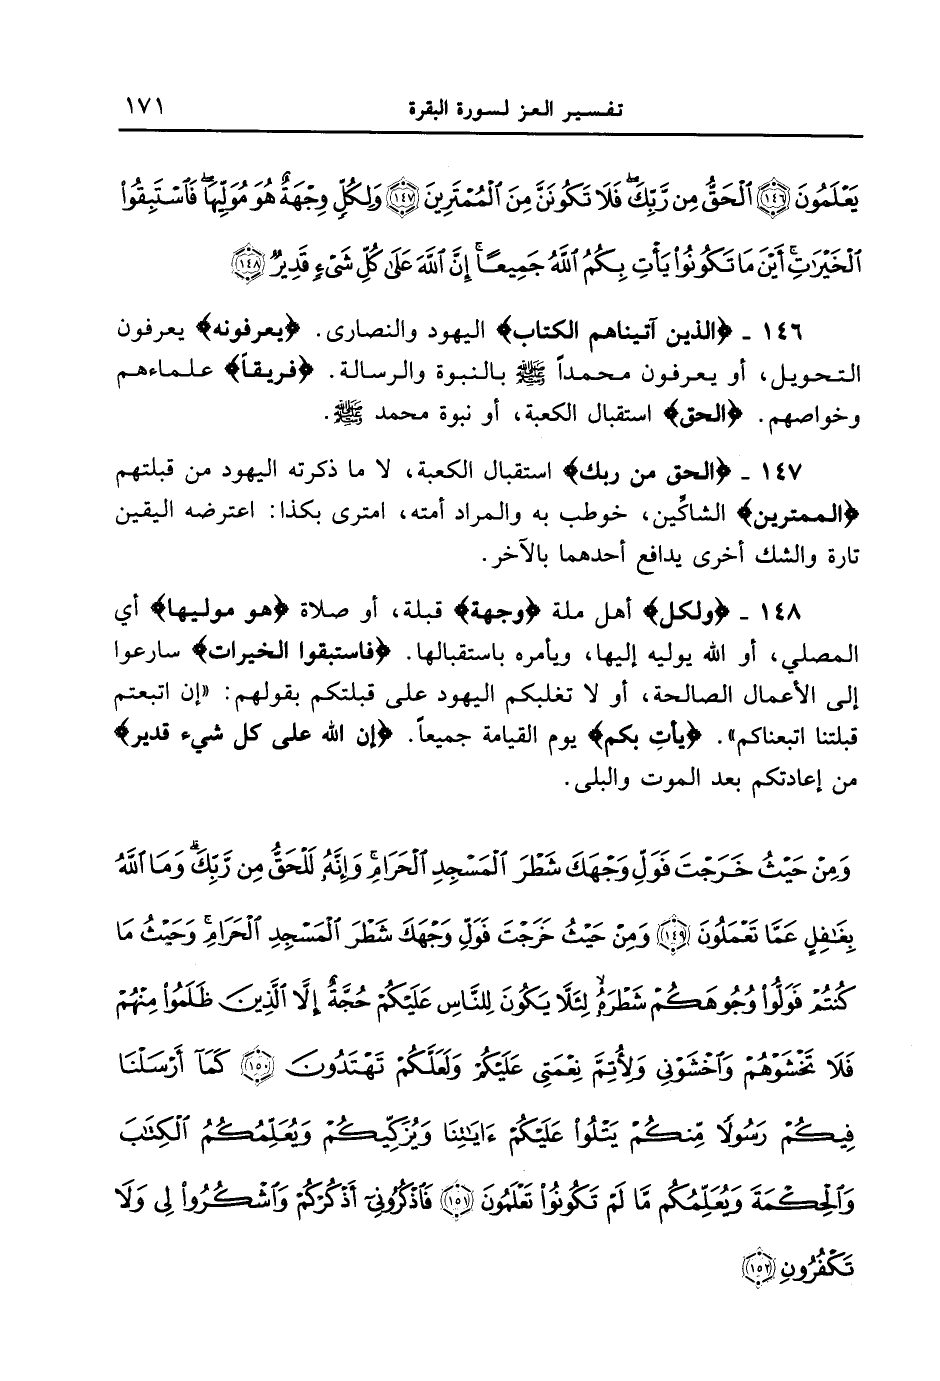 تفسير العز لسورة البقرة ١٧١
يَعْلَمُونَ ﴿١٤٦﴾ ٱلْحَقُّ مِن رَّبِّكَ ۖ فَلَا تَكُونَنَّ مِنَ ٱلْمُمْتَرِينَ ﴿١٤٧﴾ وَلِكُلٍّ وِجْهَةٌ هُوَ مُوَلِّيهَا ۖ فَٱسْتَبِقُوا۟
ٱلْخَيْرَٰتِ ۚ أَيْنَ مَا تَكُونُوا۟ يَأْتِ بِكُمُ ٱللَّهُ جَمِيعًا ۚ إِنَّ ٱللَّهَ عَلَىٰ كُلِّ شَىْءٍ قَدِيرٌ ﴿١٤٨﴾
١٤٦ ـ ﴿الذين آتيناهم الكتاب﴾ اليهود والنصارى. ﴿يعرفونه﴾ يعرفون
التحويل، أو يعرفون محمداً ﷺ بالنبوة والرسالة. ﴿فريقاً﴾ علماءهم
وخواصهم. ﴿الحق﴾ استقبال الكعبة، أو نبوة محمد ﷺ.
١٤٧ ـ ﴿الحق من ربك﴾ استقبال الكعبة، لا ما ذكرته اليهود من قبلتهم
﴿الممترين﴾ الشاكِّين، خوطب به والمراد أمته، امترى بكذا: اعترضه اليقين
تارة والشك أخرى يدافع أحدهما بالآخر.
١٤٨ ـ ﴿ولكل﴾ أهل ملة ﴿وجهة﴾ قبلة، أو صلاة ﴿هو موليها﴾ أي
المصلي، أو الله يوليه إليها، ويأمره باستقبالها. ﴿فاستبقوا الخيرات﴾ سارعوا
إلى الأعمال الصالحة، أو لا تغلبكم اليهود على قبلتكم بقولهم: «إن اتبعتم
قبلتنا اتبعناكم». ﴿يأتِ بكم﴾ يوم القيامة جميعاً. ﴿إن الله على كل شيء قدير﴾
من إعادتكم بعد الموت والبلى.
وَمِنْ حَيْثُ خَرَجْتَ فَوَلِّ وَجْهَكَ شَطْرَ ٱلْمَسْجِدِ ٱلْحَرَامِ ۖ وَإِنَّهُۥ لَلْحَقُّ مِن رَّبِّكَ ۗ وَمَا ٱللَّهُ
بِغَٰفِلٍ عَمَّا تَعْمَلُونَ ﴿١٤٩﴾ وَمِنْ حَيْثُ خَرَجْتَ فَوَلِّ وَجْهَكَ شَطْرَ ٱلْمَسْجِدِ ٱلْحَرَامِ ۚ وَحَيْثُ مَا
كُنتُمْ فَوَلُّوا۟ وُجُوهَكُمْ شَطْرَهُۥ لِئَلَّا يَكُونَ لِلنَّاسِ عَلَيْكُمْ حُجَّةٌ إِلَّا ٱلَّذِينَ ظَلَمُوا۟ مِنْهُمْ
فَلَا تَخْشَوْهُمْ وَٱخْشَوْنِى وَلِأُتِمَّ نِعْمَتِى عَلَيْكُمْ وَلَعَلَّكُمْ تَهْتَدُونَ ﴿١٥٠﴾ كَمَآ أَرْسَلْنَا
فِيكُمْ رَسُولًا مِّنكُمْ يَتْلُوا۟ عَلَيْكُمْ ءَايَٰتِنَا وَيُزَكِّيكُمْ وَيُعَلِّمُكُمُ ٱلْكِتَٰبَ
وَٱلْحِكْمَةَ وَيُعَلِّمُكُم مَّا لَمْ تَكُونُوا۟ تَعْلَمُونَ ﴿١٥١﴾ فَٱذْكُرُونِىٓ أَذْكُرْكُمْ وَٱشْكُرُوا۟ لِى وَلَا
تَكْفُرُونِ ﴿١٥٢﴾